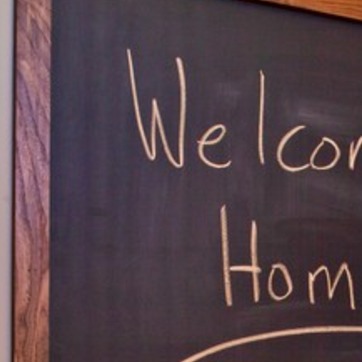 Welcom
Hom